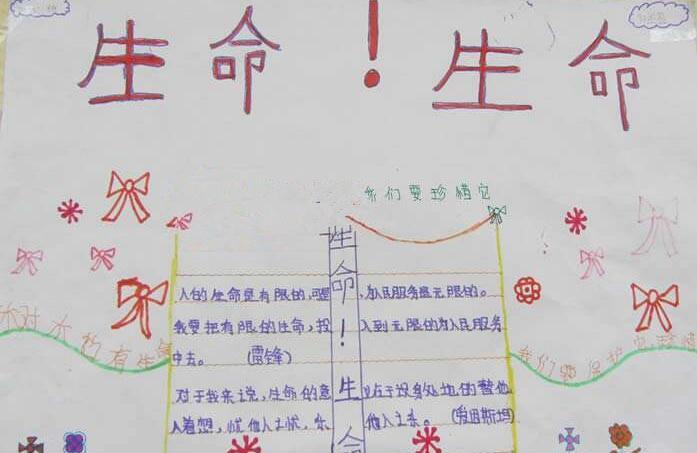 生命！生命
我们要珍惜它
性命！生命
人的生命是有限的,可是,为人民服务是无限的。
我要把有限的生命,投入到无限的为人民服务
中去。 (雷锋)
对于我来说,生命的意义在于设身处地的替他
人着想,忧他人之忧,乐他人之乐。 (爱因斯坦)
有生命
我们要保护它珍惜